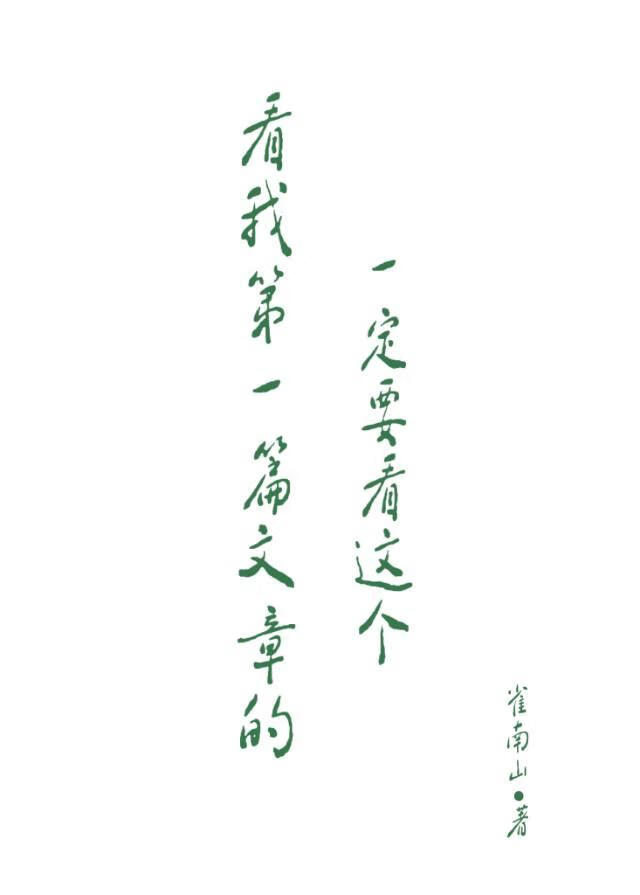 看我第一篇文章的
一定要看这个
雀南山●著